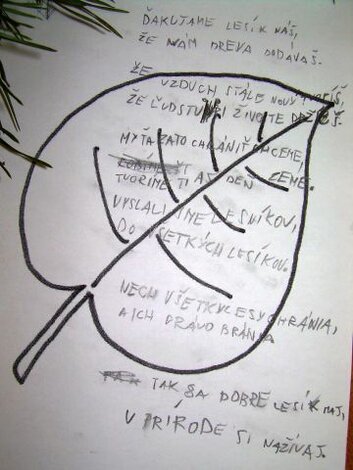 ĎAKUJAME LESÍK NÁŠ,
ŽE NÁM DREVA DODÁVAŠ.
ŽE VZDUCH STÁLE NOVÝ
ŽE ĽUDSTVU ŽIVOTE
MY ŤA ZATO CHRÁNIŤ CHCEME,
TVORÍME TI ASI DEŇ
VYSLALI SME LESNÍKOV,
DO VŠETKÝCH LESÍKOV.
NECH VŠETKY LESY CHRÁNIA,
A ICH PRAVO BRÁNIA
TAK SA DOBRE LESÍK MAJ,
V PRÍRODE SI NAŽÍVAJ.